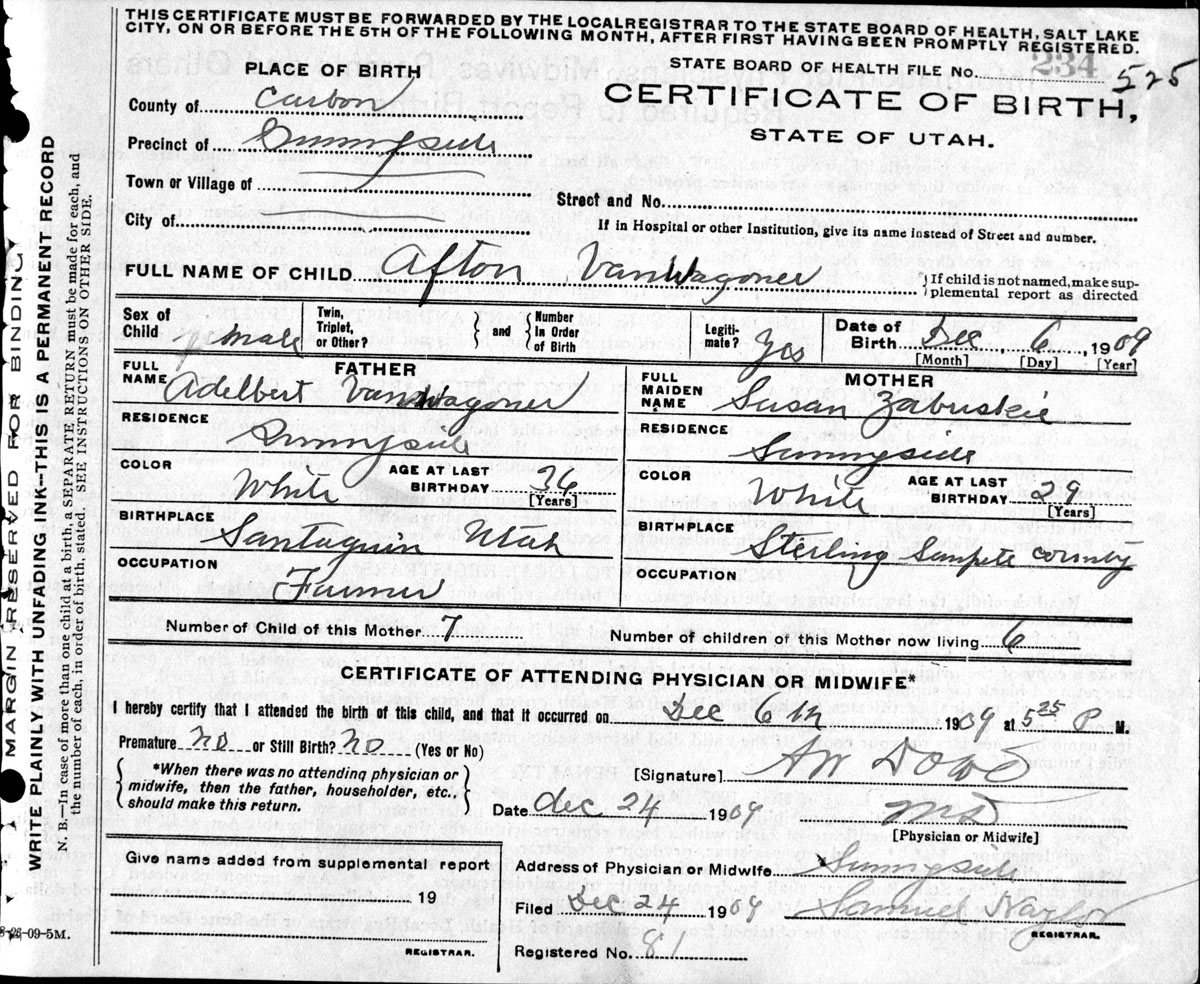 THIS CERTIFICATE MUST BE FORWARDED BY THE LOCAL REGISTRAR TO THE STATE BOARD OF HEALTH, SALT LAKE
CITY, ON OR BEFORE THE 5TH OF THE FOLLOWING MONTH, AFTER FIRST HAVING BEEN PROMPTLY REGISTERED.
STATE BOARD OF HEALTH FILE No. 234 525
PLACE OF BIRTH
CERTIFICATE OF BIRTH,
STATE OF UTAH.
County of Carbon
Precinct of Sunnyside
Town or Village of
Street and No.
City of
If in Hospital or other Institution, give its name instead of Street and number.
FULL NAME OF CHILD Afton VanWagoner
If child is not named, make sup-
plemental report as directed
Sex of Child female
Twin, Triplet, or Other?
and
Number in Order of Birth
Legiti-mate? Yes
Date of Birth Dec 6, 1909
[Month] [Day] [Year]
FATHER
FULL NAME Adelbert VanWagoner
RESIDENCE Sunnyside
COLOR White
AGE AT LAST BIRTHDAY 36 [Years]
BIRTHPLACE Santaquin Utah
OCCUPATION Farmer
MOTHER
FULL MAIDEN NAME Susan Zabriskie
RESIDENCE Sunnyside
COLOR White
AGE AT LAST BIRTHDAY 29 [Years]
BIRTHPLACE Sterling Sanpete County
OCCUPATION
Number of Child of this Mother 7
Number of children of this Mother now living 6
CERTIFICATE OF ATTENDING PHYSICIAN OR MIDWIFE*
I hereby certify that I attended the birth of this child, and that it occurred on Dec 6th 1909 at 5 25 P M.
Premature No or Still Birth? No (Yes or No)
*When there was no attending physician or
midwife, then the father, householder, etc.,
should make this return.
[Signature] AW Dowd
Date Dec 24 1909
MD
[Physician or Midwife]
Give name added from supplemental report
19
REGISTRAR.
Address of Physician or Midwife Sunnyside
Filed Dec 24 1909 Samuel Naylor
REGISTRAR.
Registered No. 81
MARGIN RESERVED FOR BINDING
WRITE PLAINLY WITH UNFADING INK--THIS IS A PERMANENT RECORD
N. B.—In case of more than one child at a birth, a SEPARATE RETURN must be made for each, and
the number of each, in order of birth, stated. SEE INSTRUCTIONS ON OTHER SIDE.
26-09-5M.